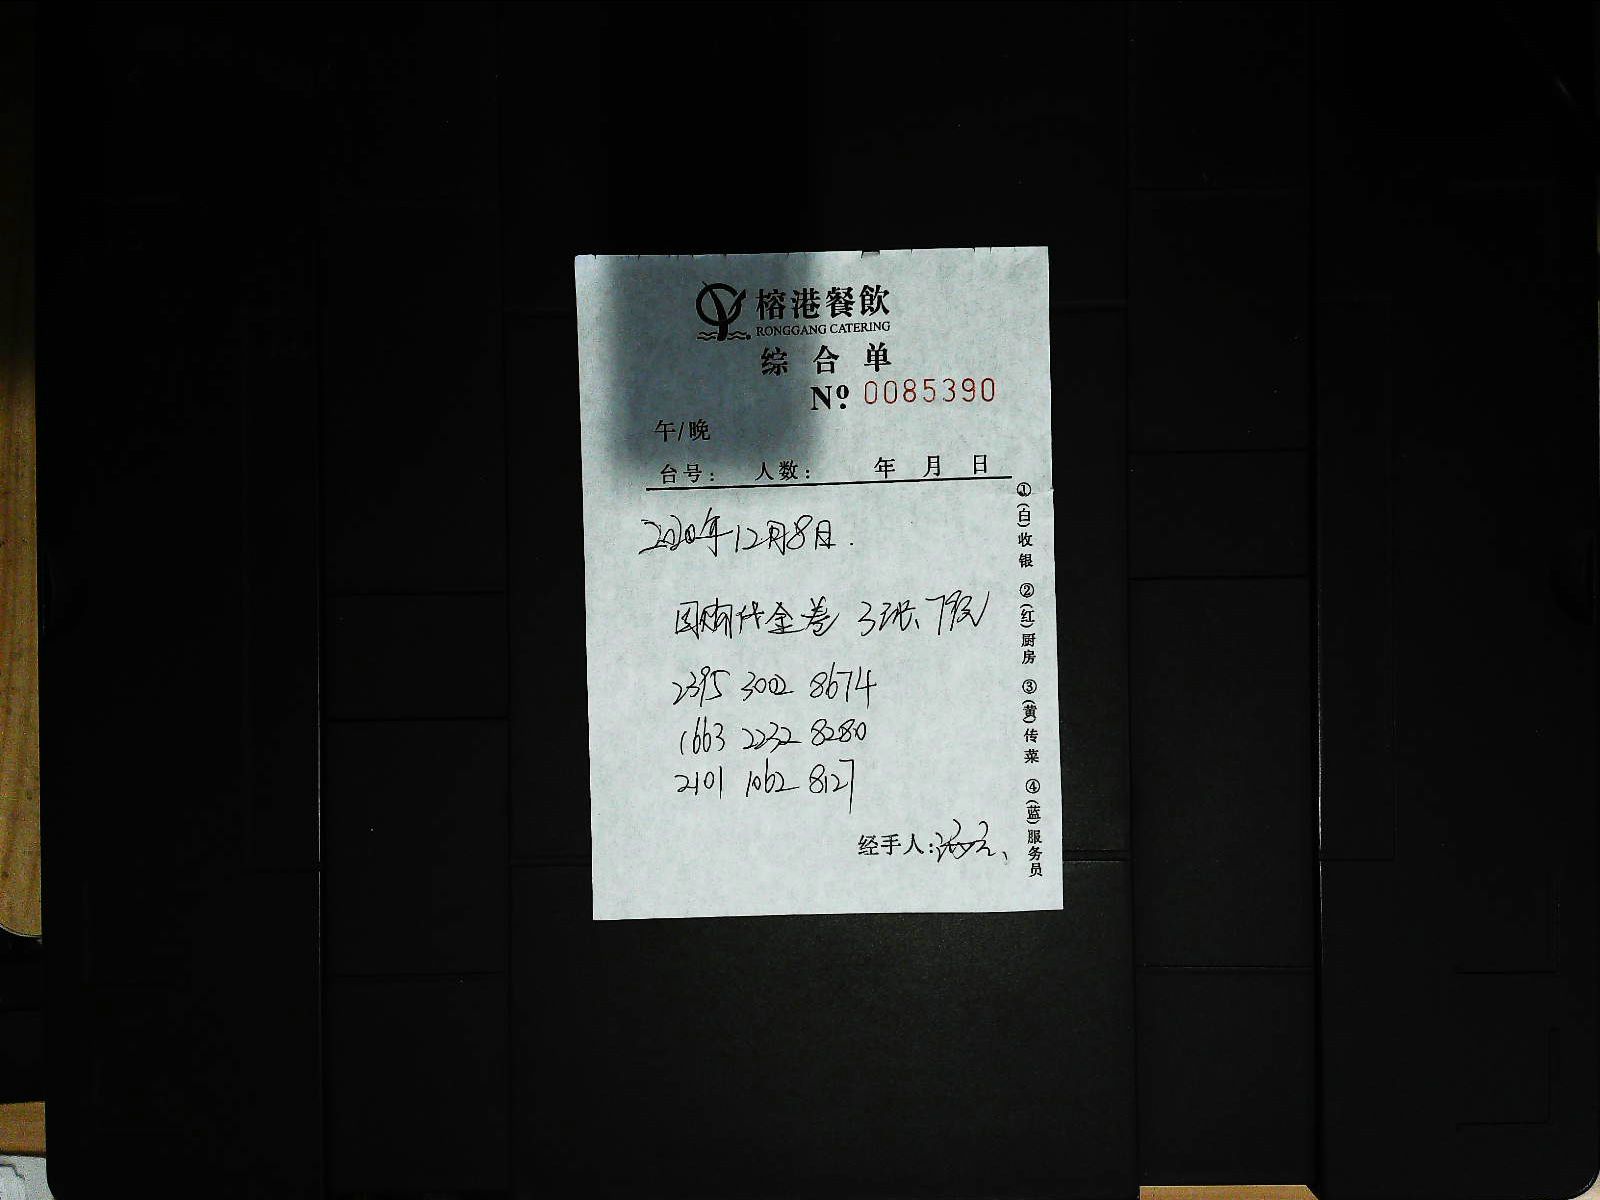 榕港餐飲
RONGGANG CATERING
综合单
Nº 0085390
午/晚
台号: 人数: 年 月 日
2020年12月8日.
团购代金卷 3张、
2395 3002 8674
1663 2232 8280
2101 1062 8127
经手人:
①(白)收银 ②(红)厨房 ③(黄)传菜 ④(蓝)服务员